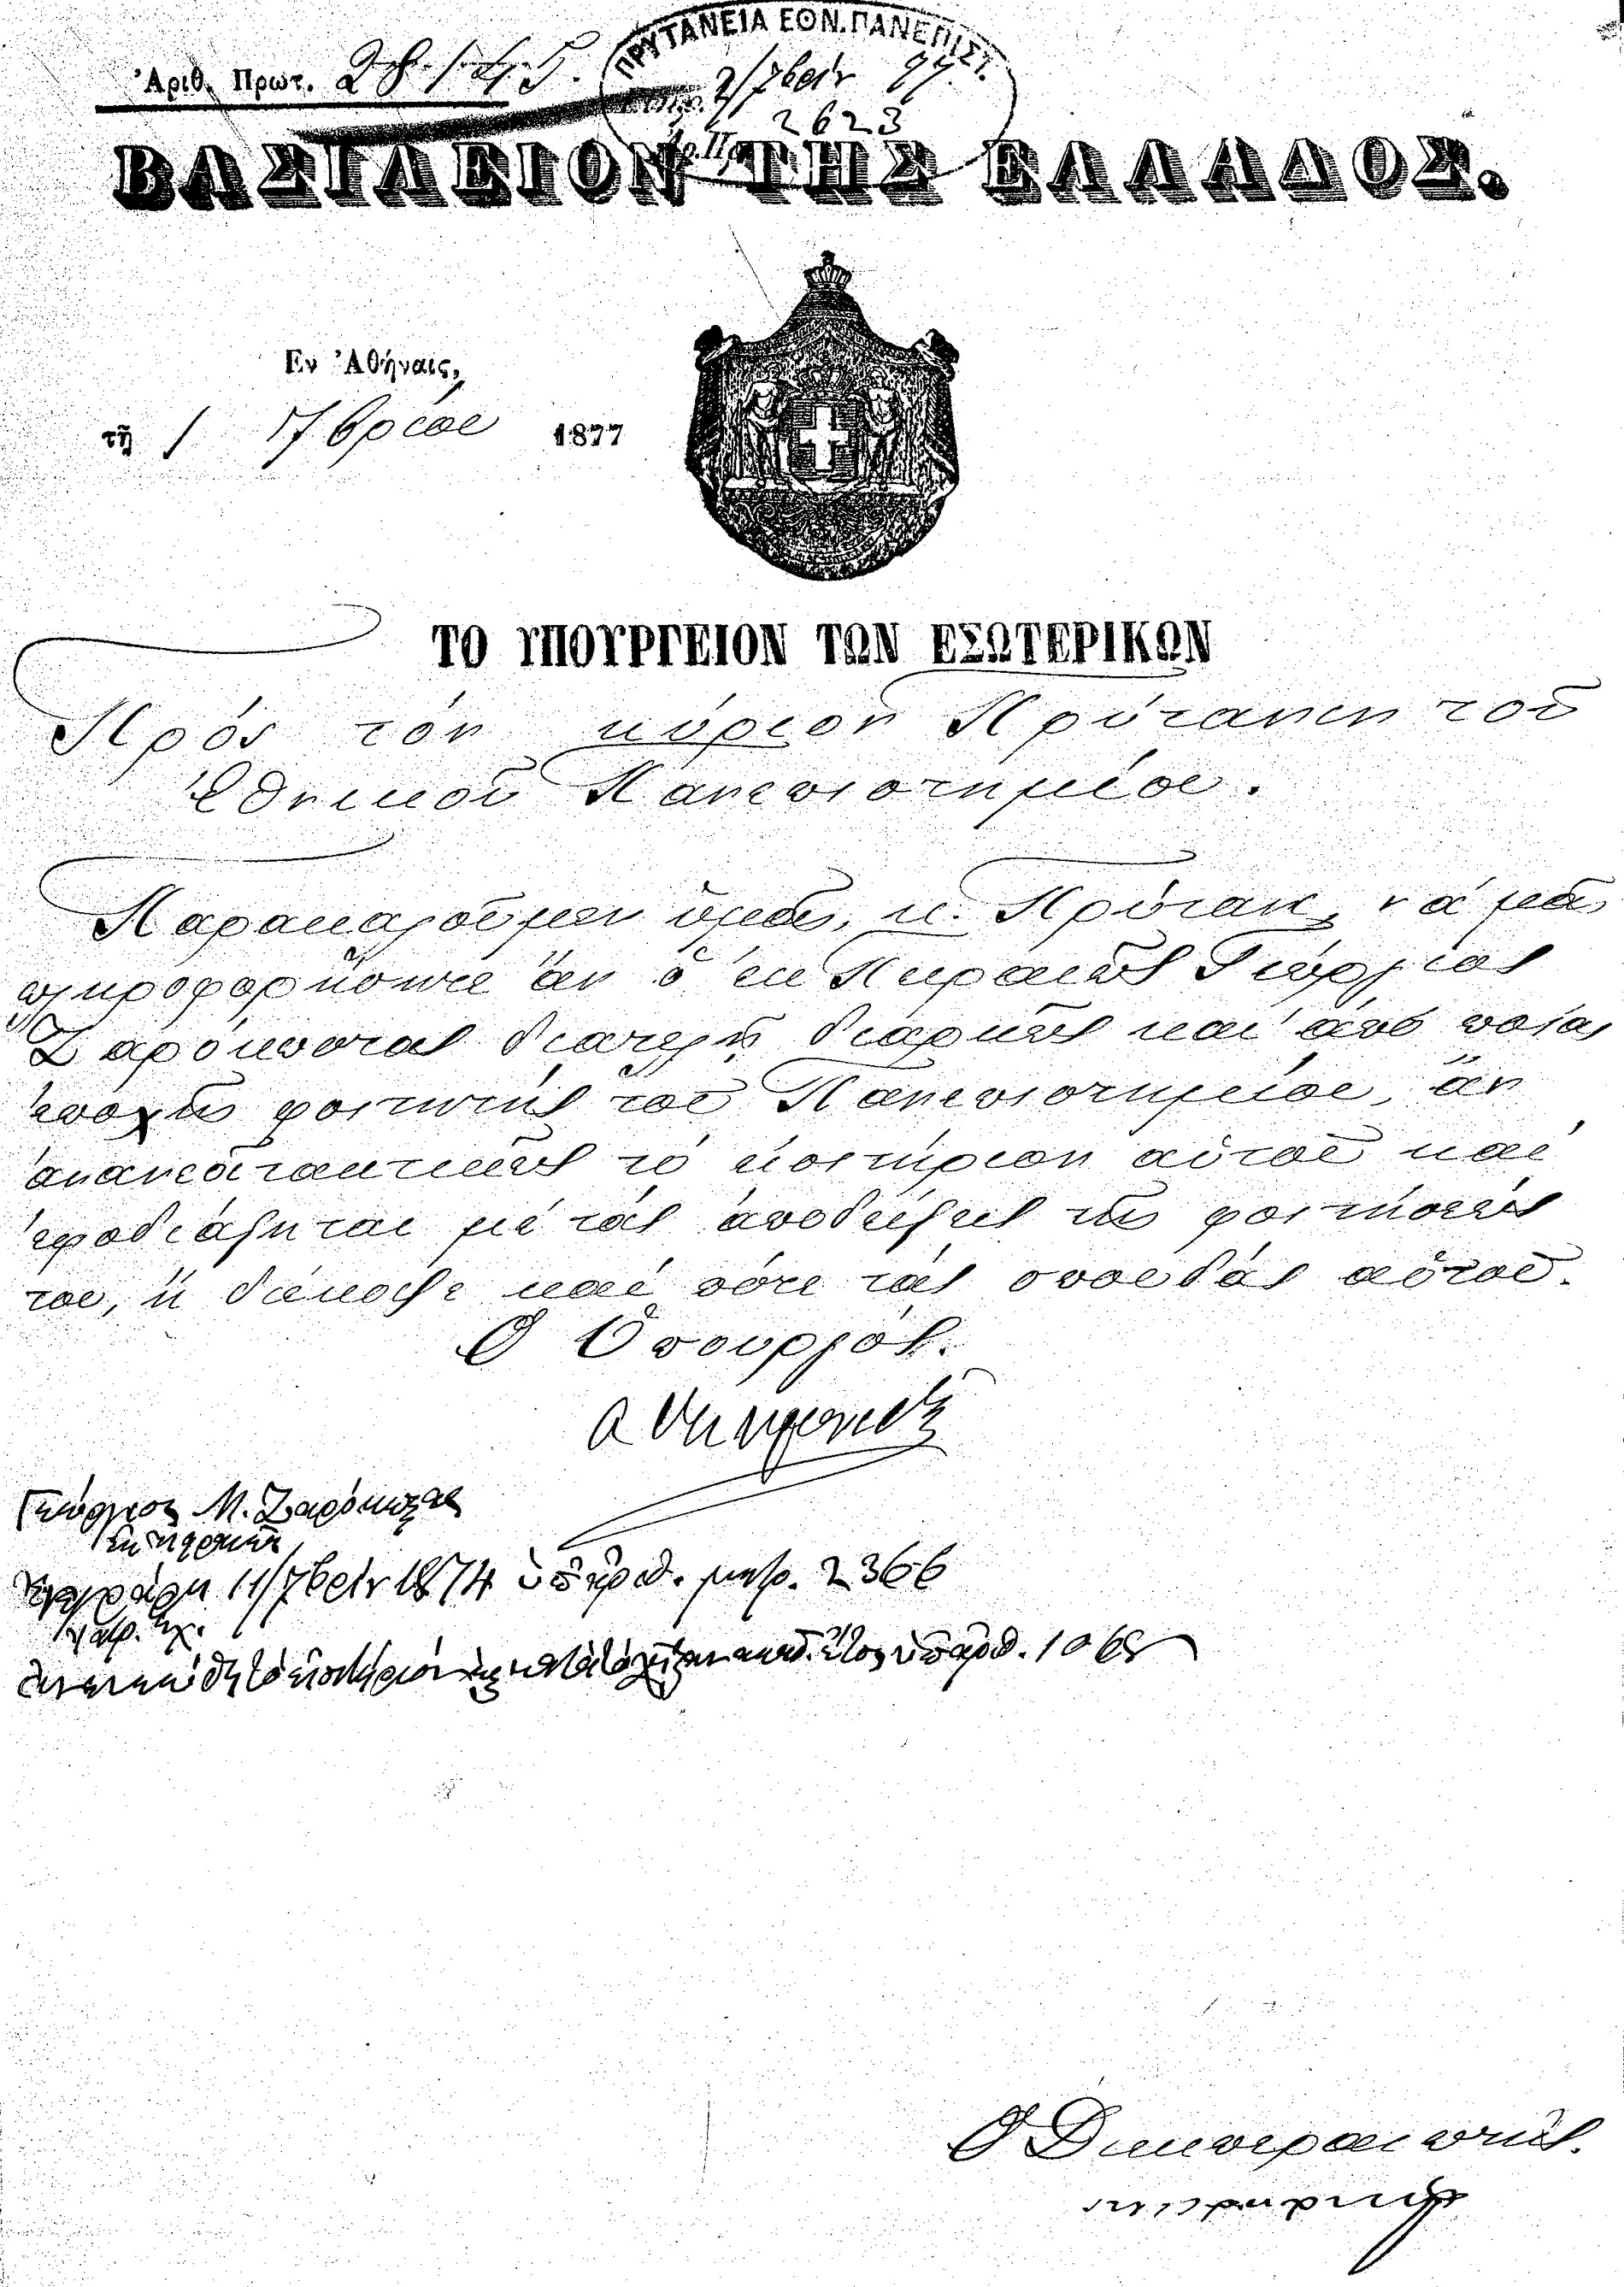 Ἀριθ. Πρωτ. 28145.
ΠΡΥΤΑΝΕΙΑ ΕΘΝ. ΠΑΝΕΠΙΣΤ.
2/7βρίου 77
2623
ΒΑΣΙΛΕΙΟΝ ΤΗΣ ΕΛΛΑΔΟΣ.
Ἐν Ἀθήναις,
τῇ 1 7βρίου 1877
ΤΟ ΥΠΟΥΡΓΕΙΟΝ ΤΩΝ ΕΣΩΤΕΡΙΚΩΝ
Πρὸς τὸν κύριον Πρύτανιν τοῦ
Ἐθνικοῦ Πανεπιστημίου.
Παρακαλοῦμεν ὑμᾶς, κ. Πρύτανι, νὰ μᾶς
πληροφορήσητε ἂν ὁ ἐκ Πειραιῶς Γεώργιος
Ζαρόκωστας διατελῇ διαρκῶς καὶ ἀπὸ ποίας
ἐποχῆς φοιτητὴς τοῦ Πανεπιστημίου, ἂν
ἀνανεοῖ τακτικῶς τὸ εἰσιτήριον αὐτοῦ καὶ
ἐφοδιάζηται μὲ τὰς ἀποδείξεις τῆς φοιτήσεώς
του, ἢ διέκοψε καὶ πότε τὰς σπουδὰς αὐτοῦ.
Ὁ Ὑπουργός.
Γεώργιος Μ. Ζαρόκωστας
ἐκ Πειραιῶς
Ἐνεγράφη 11/7βρίου 1874 ὑπ' ἀριθ. μητρ. 2366
ἰατρ. σχ.
ἀνενεώθη τὸ εἰσιτήριόν της κατὰ τὸ ἀκαδ. ἔτος ὑπ' ἀριθ. 1068
Ὁ Διεκπεραιωτής.